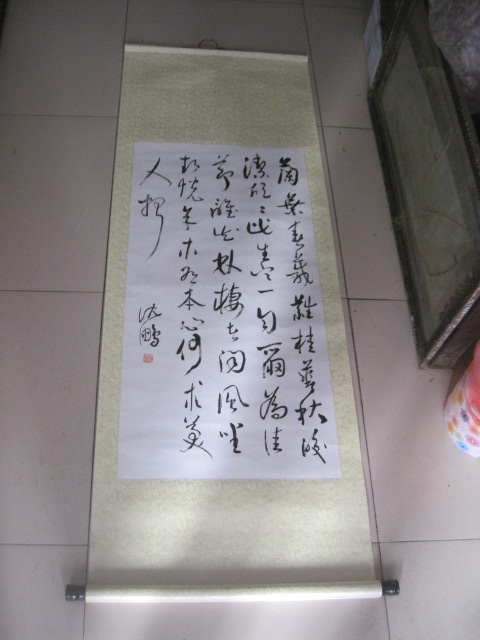 蘭葉春葳蕤桂華秋皎
潔欣〻此生意自爾為佳
節誰知林棲者聞風坐
相悅草木有本心何求美
人折
沈鵬